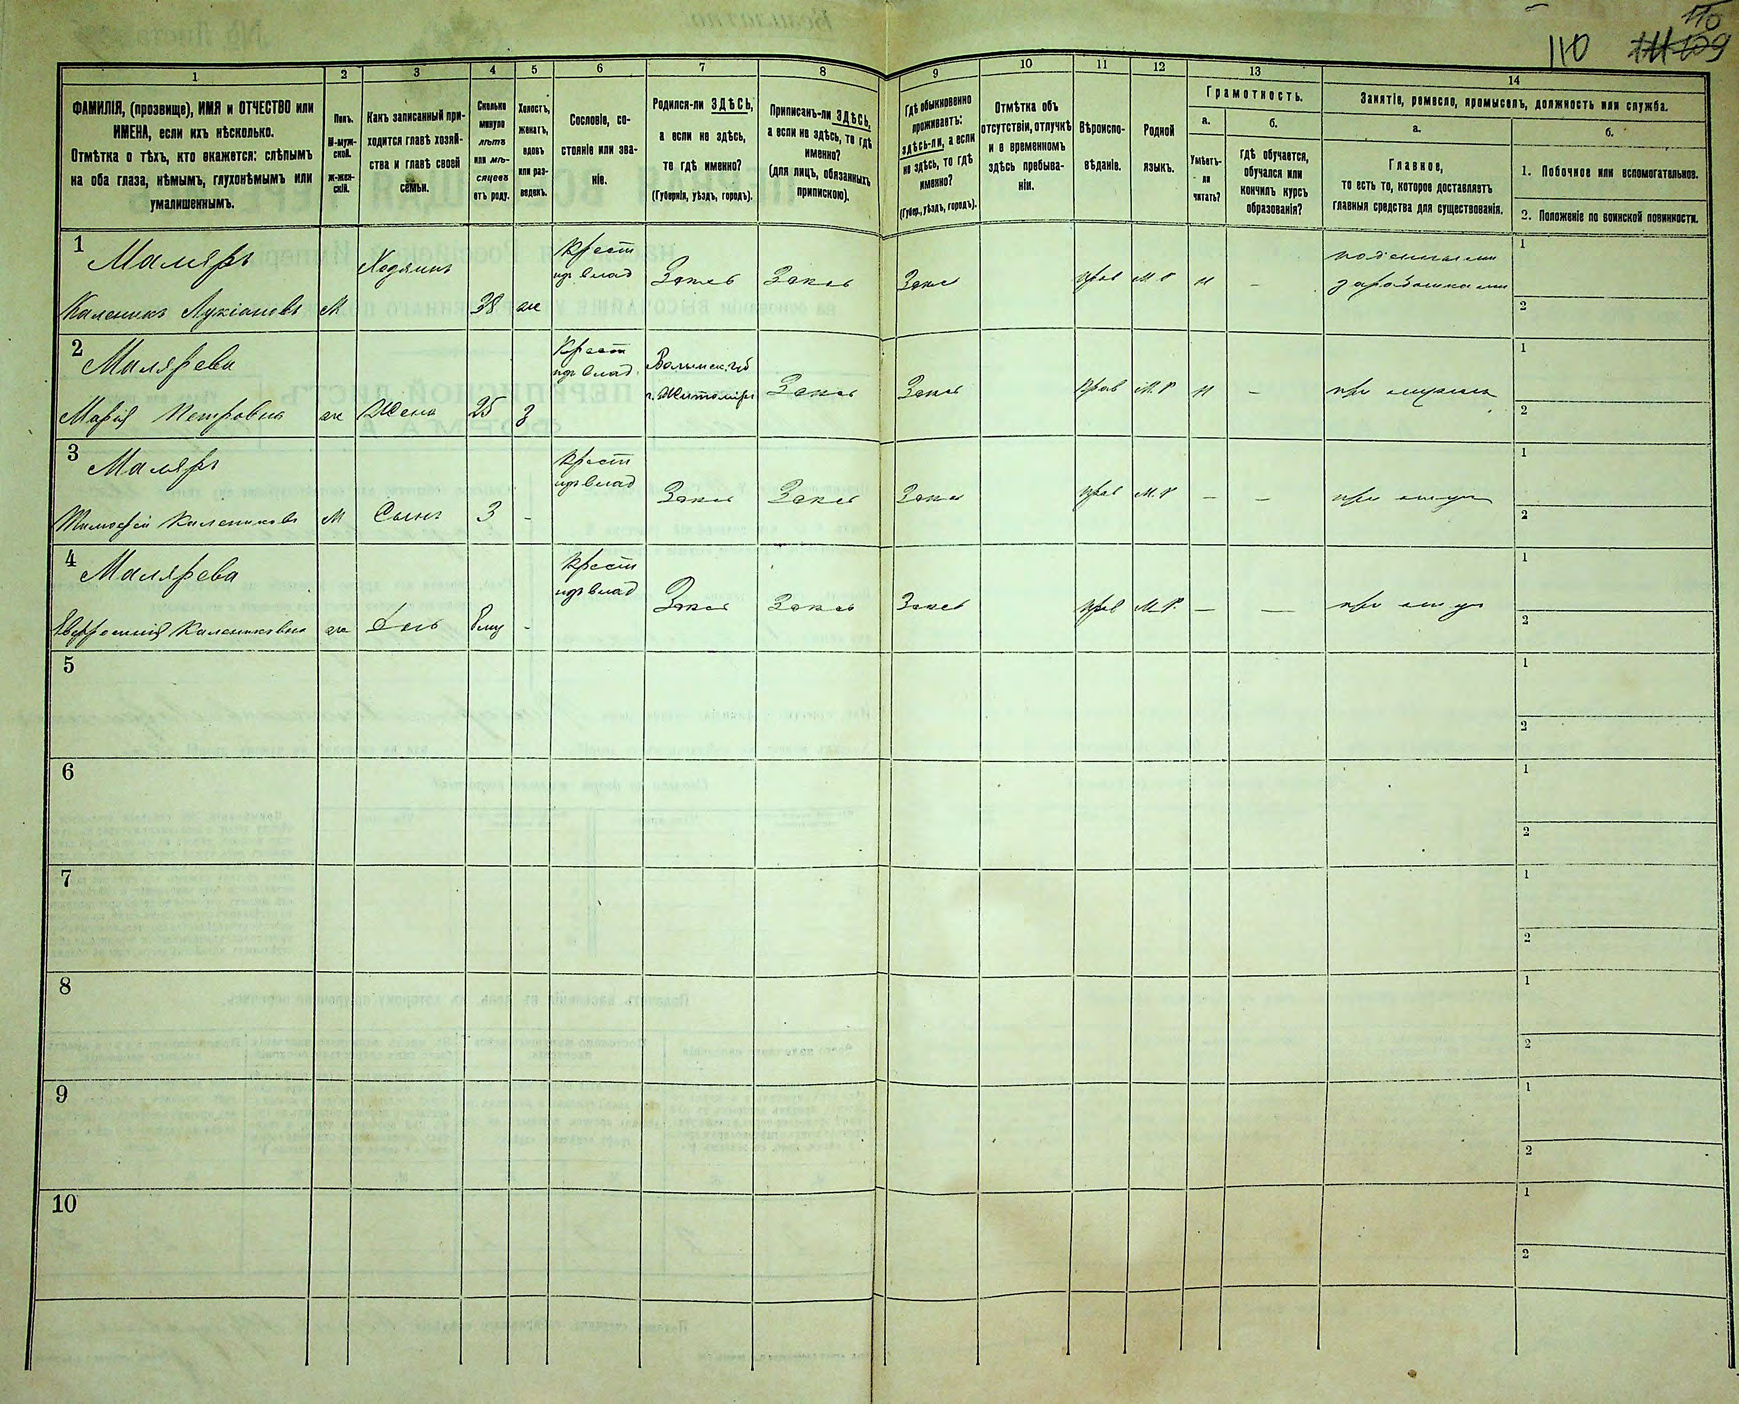 110 111 109
110
1 2 3 4 5 6 7 8 9 10 11 12 13 14
ФАМИЛІЯ, (прозвище), ИМЯ и ОТЧЕСТВО или
ИМЕНА, если ихъ нѣсколько.
Отмѣтка о тѣхъ, кто окажется: слѣпымъ
на оба глаза, нѣмымъ, глухонѣмымъ или
умалишеннымъ.
Полъ.
М-муж-
ской.
ж-жен-
скій.
Какъ записанный при-
ходится главѣ хозяй-
ства и главѣ своей
семьи.
Сколько
минуло
лѣтъ
или мѣ-
сяцевъ
отъ роду.
Холостъ,
женатъ,
вдовъ
или раз-
веденъ.
Сословіе, со-
стояніе или зва-
ніе.
Родился-ли ЗДѢСЬ,
а если не здѣсь,
то гдѣ именно?
(Губернія, уѣздъ, городъ).
Приписанъ-ли ЗДѢСЬ,
а если не здѣсь, то гдѣ
именно?
(для лицъ, обязанныхъ
припискою).
Гдѣ обыкновенно
проживаетъ:
здѣсь-ли, а если
не здѣсь, то гдѣ
именно?
(Губер., уѣздъ, городъ).
Отмѣтка объ
отсутствіи, отлучкѣ
и о временномъ
здѣсь пребыва-
ніи.
Вѣроиспо-
вѣданіе.
Родной
языкъ.
Грамотность.
а.
Умѣетъ-
ли
читать?
б.
гдѣ обучается,
обучался или
кончилъ курсъ
образованія?
Занятіе, ремесло, промыселъ, должность или служба.
а.
Главное,
то есть то, которое доставляетъ
главныя средства для существованія.
б.
1. Побочное или вспомогательное.
2. Положеніе по воинской повинности.
1 Маляръ Хозяинъ Крест Здесь Здесь Здесь прав М.Р н - поденными 1
Каленикъ Лукіановъ М 38 же изъ влад заработками 2
2 Малярева Крест Волынск. губ Здесь Здесь прав М.Р н - при мужѣ 1
Марія Петровна ж Жена 25 З изъ влад. г. Житоміръ 2
3 Маляръ Крест Здесь Здесь Здесь прав М.Р - - при отцу 1
Тимофей Калениковъ М Сынъ 3 - изъ влад 2
4 Малярева Крест Здесь Здесь Здесь прав М.Р. - - при отцу 1
Евфросинія Калениковна ж Дочь - изъ влад 2
5 1
2
6 1
2
7 1
2
8 1
2
9 1
2
10 1
2